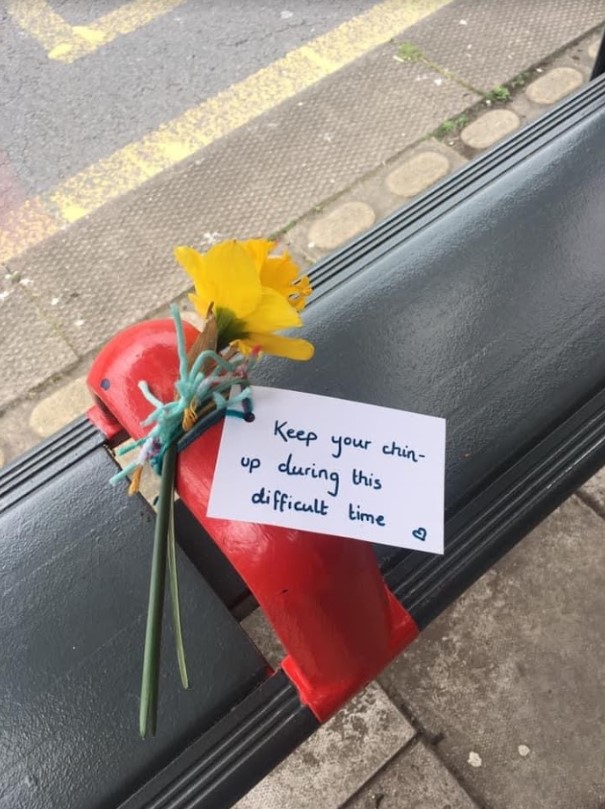 Keep your chin-
up during this
difficult time ♡